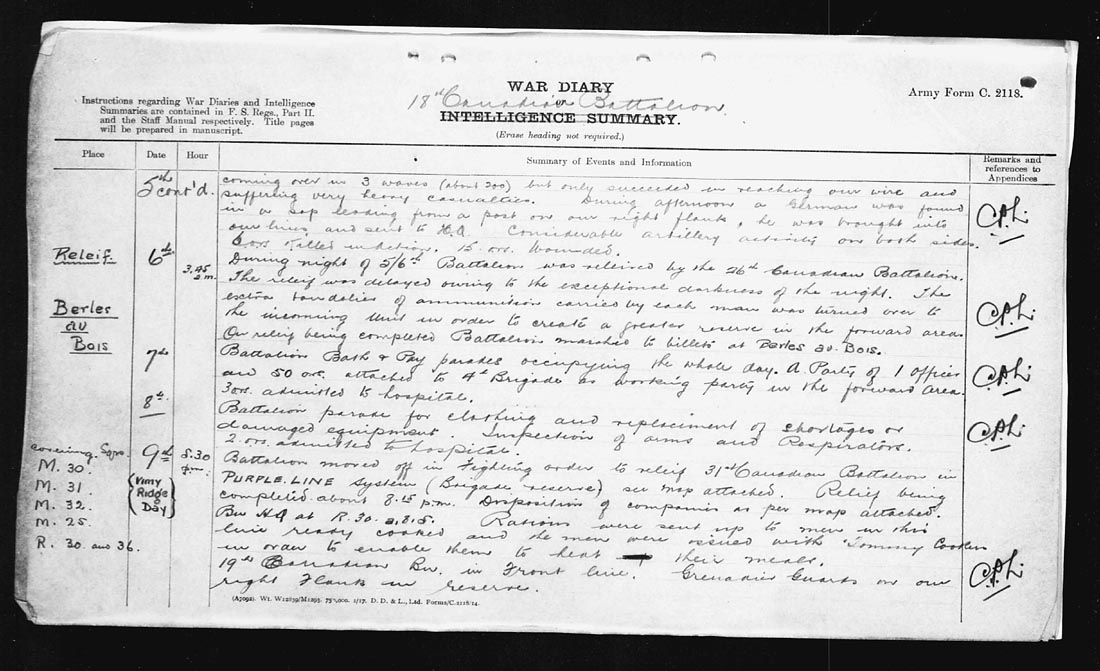 WAR DIARY
or
18th Canadian Battalion
INTELLIGENCE SUMMARY.
(Erase heading not required.)
Army Form C. 2118.
Instructions regarding War Diaries and Intelligence
Summaries are contained in F. S. Regs., Part II.
and the Staff Manual respectively. Title pages
will be prepared in manuscript.
Place Date Hour Summary of Events and Information Remarks and references to Appendices
5th cont'd. coming over in 3 waves (about 200) but only succeeded in reaching our wire and
suffering very heavy casualties. During afternoon a German was found
in a sap leading from a post on our right flank, he was brought into
our lines and sent to H.Q. Considerable artillery activity on both sides.
ors. Killed in action. 15 ors. Wounded.
Releif 6th 3.45 a.m. During night of 5/6th Battalion was releived by the 26th Canadian Battalion.
The releif was delayed owing to the exceptional darkness of the night. The
extra bandoliers of ammunition carried by each man was turned over to
the incoming Unit in order to create a greater reserve in the forward area.
Berles au Bois On relief being completed Battalion marched to billets at Berles au Bois.
7th Battalion Bath & Pay parades occupying the whole day. A Party of 1 Officer
and 50 ors. attached to 4th Brigade as working party in the forward area.
3 ors. admitted to hospital.
8th Battalion parade for clothing and replacement of shortages or
damaged equipment. Inspection of arms and Respirators.
2 ors. admitted to hospital.
9th 5.30 p.m. Battalion moved off in Fighting order to releif 31st Canadian Battalion in
PURPLE.LINE System (Brigade reserve) see map attached. Relief being
completed about 8.15 p.m. Disposition of companies as per map attached.
Bn H.Q at R. 30. a.8.5. Rations were sent up to men in this
line ready cooked and the men were issued with "Tommy Cookers
in order to enable them to heat their meals.
19th Canadian Bn. in Front line. Grenadier Guards on our
right Flank in reserve.
(Vimy Ridge Day)
covering Sqrs.
M. 30.
M. 31.
M. 32.
M. 25.
R. 30 and 36.
(A7092). Wt. W12859/M1293. 750,000. 1/17. D. D. & L., Ltd. Forms/C.2118/14.